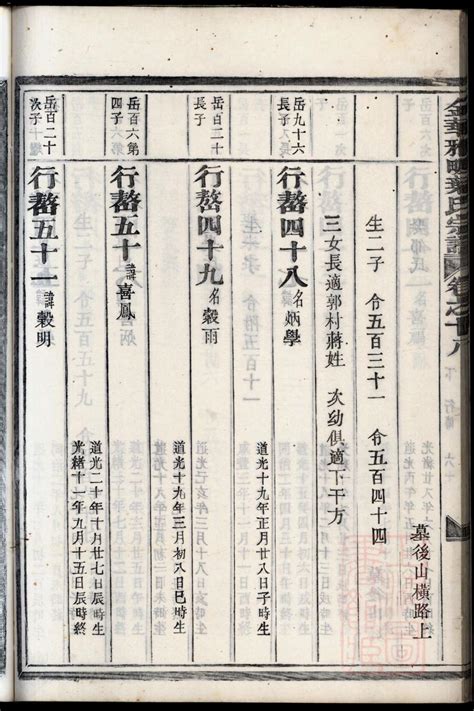 金華雅畈葉氏宗譜 卷之十八 下 行
生二子 令五百三十一 令五百四十四
墓後山橫路上
三女長適郭村蔣姓 次幼俱適下干方
岳九十六
長子
行嶅四十八 名炳學
道光十九年正月廿八日子時生
岳百二十
長子
行嶅四十九 名穀雨
道光十九年三月初八日巳時生
岳百六第
四子
行嶅五十 諱喜鳳
道光二十年十月廿七日辰時生
光緒十一年九月十五日辰時終
岳百二十
次子
行嶅五十一 諱穀明